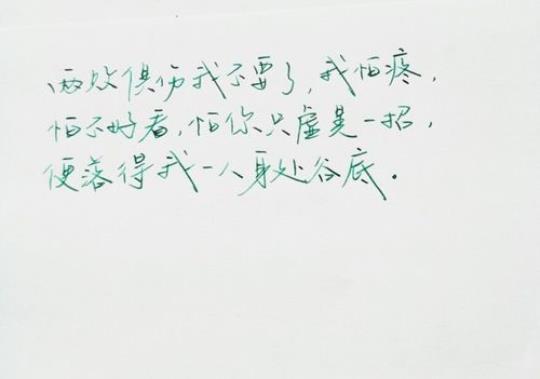 两败俱伤我不要了，我怕疼，
怕不好看，怕你只虚晃一招，
便落得我一人身处谷底．